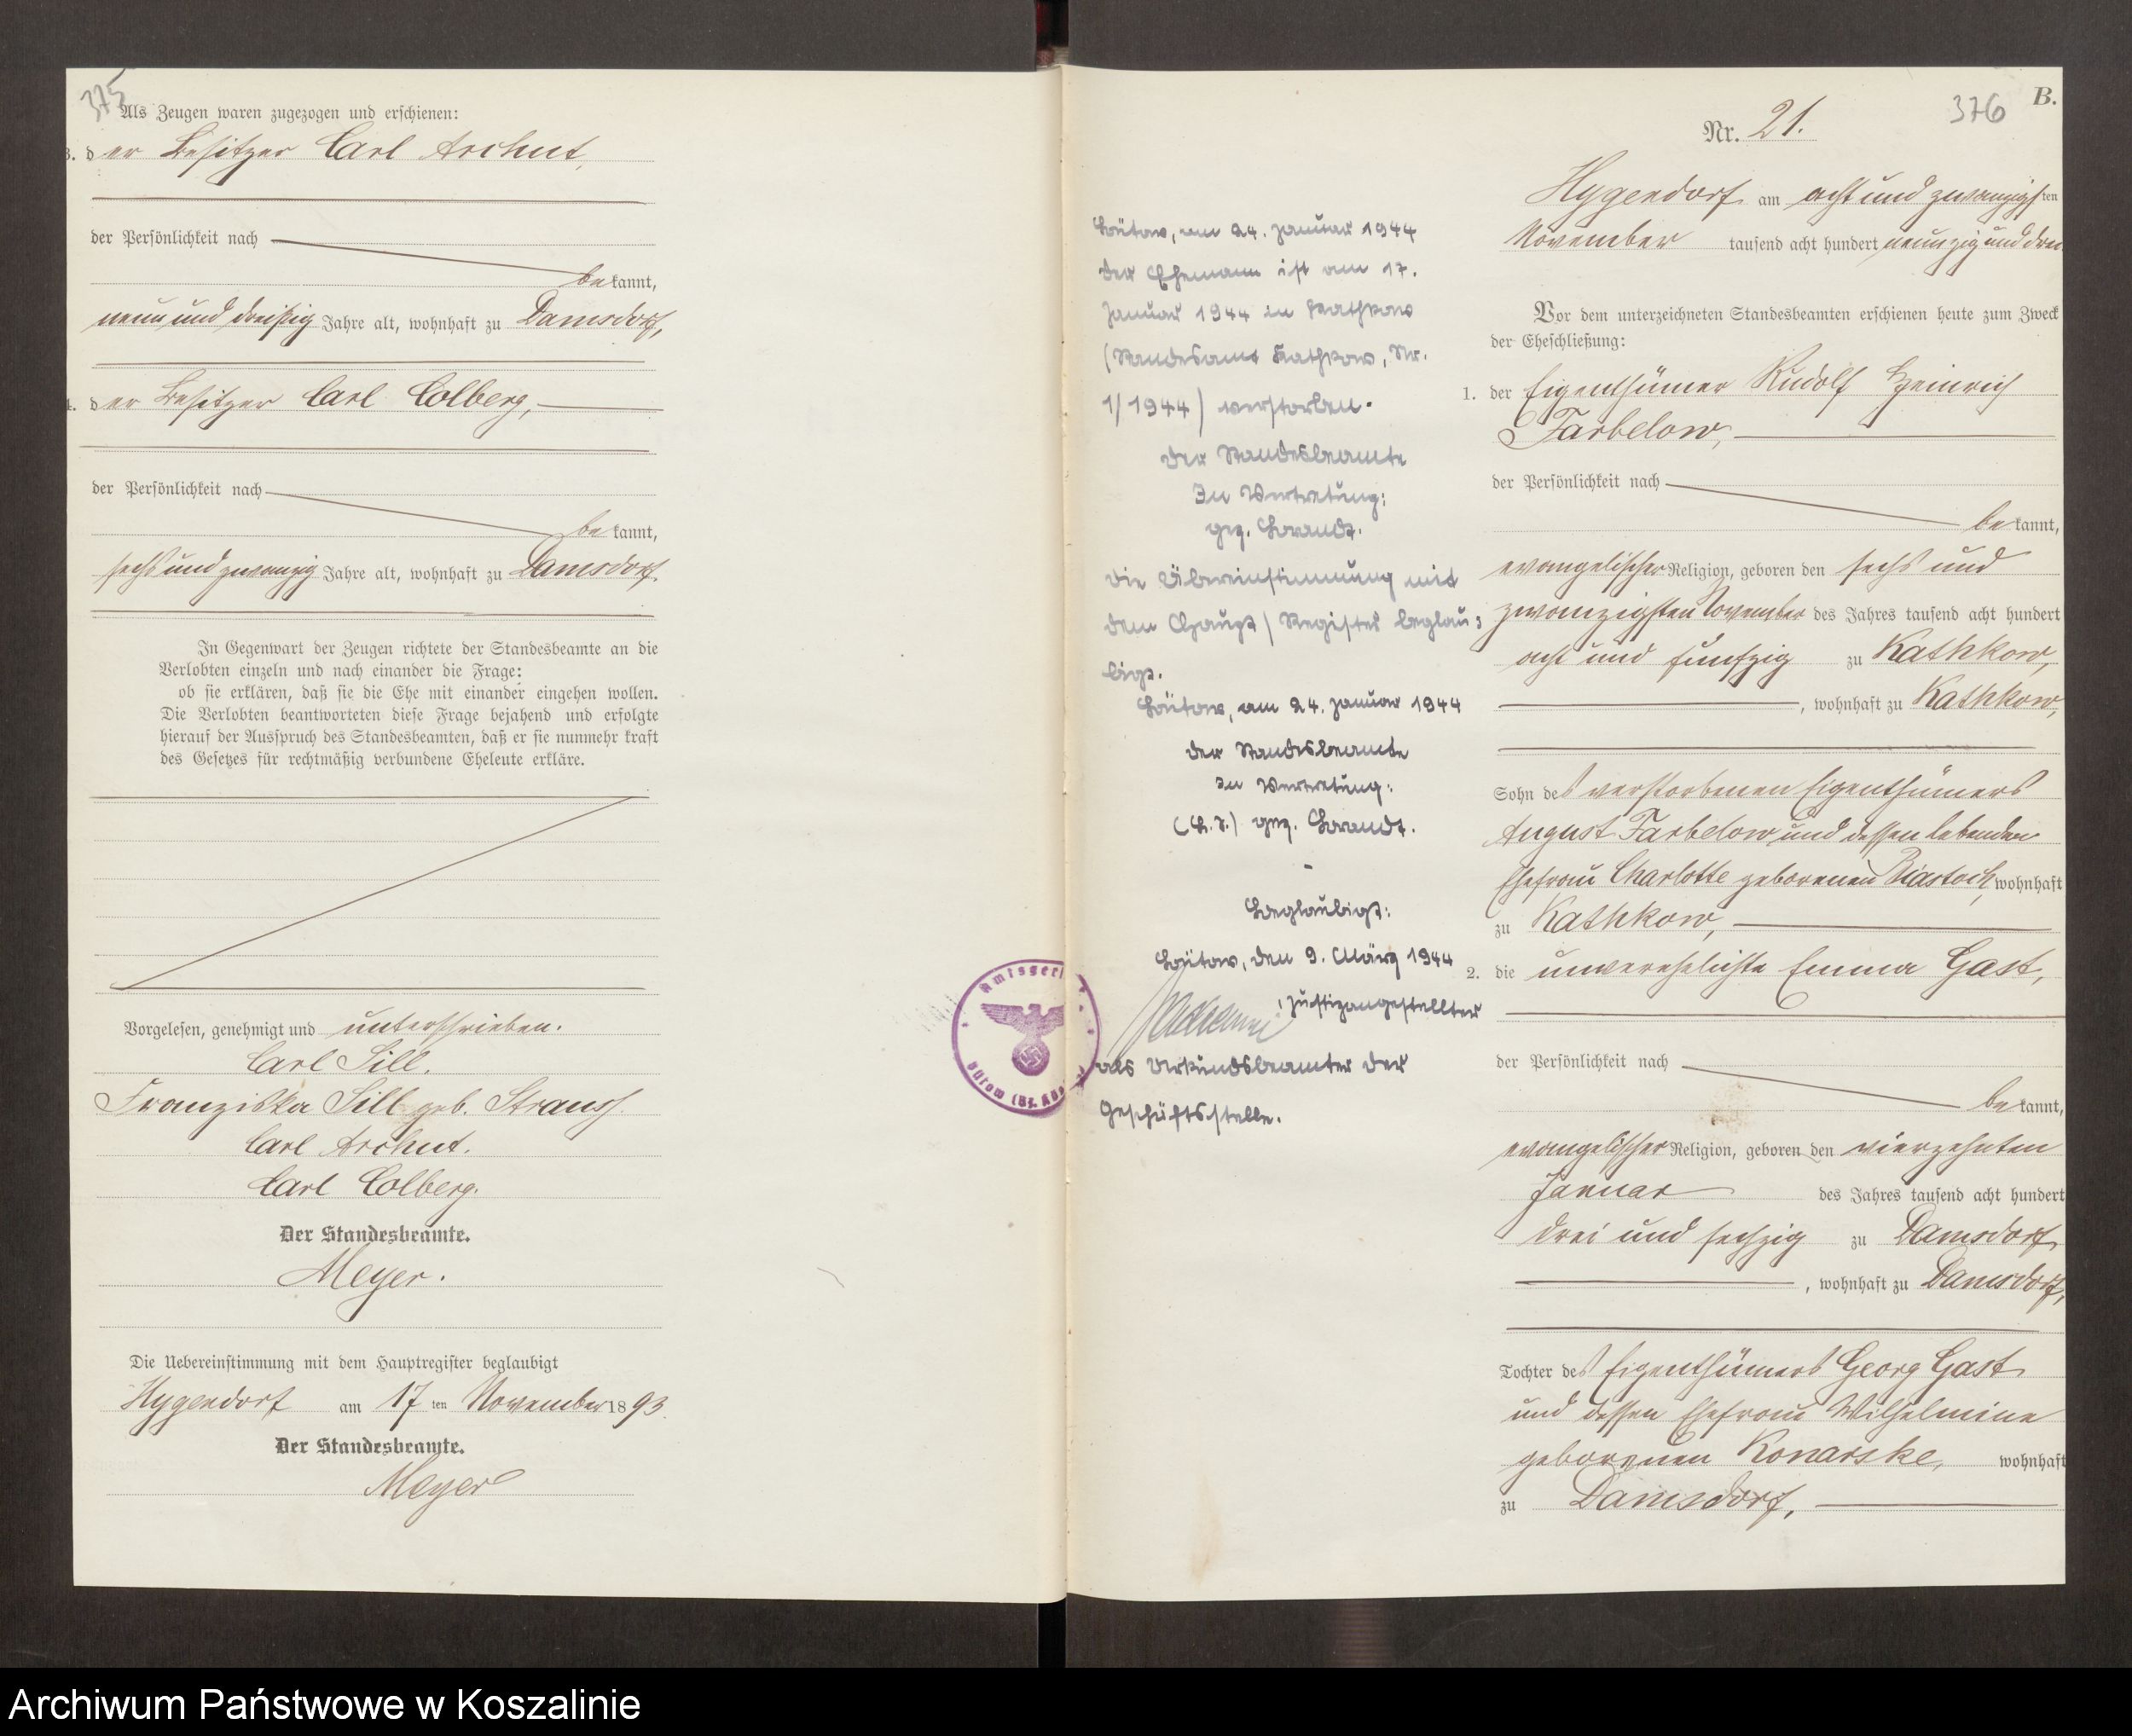 375
Als Zeugen waren zugezogen und erschienen:
3. der Besitzer Carl Archut,
der Persönlichkeit nach
bekannt,
neun und dreißig Jahre alt, wohnhaft zu Damsdorf,
4. der Besitzer Carl Colberg,
der Persönlichkeit nach
bekannt,
sechs und zwanzig Jahre alt, wohnhaft zu Damsdorf.
In Gegenwart der Zeugen richtete der Standesbeamte an die
Verlobten einzeln und nach einander die Frage:
ob sie erklären, daß sie die Ehe mit einander eingehen wollen.
Die Verlobten beantworteten diese Frage bejahend und erfolgte
hierauf der Ausspruch des Standesbeamten, daß er sie nunmehr kraft
des Gesetzes für rechtmäßig verbundene Eheleute erkläre.
Vorgelesen, genehmigt und unterschrieben.
Carl Sill.
Franziska Sill geb. Strauss.
Carl Archut.
Carl Colberg.
Der Standesbeamte.
Meyer.
Die Uebereinstimmung mit dem Hauptregister beglaubigt
Hygendorf am 17 ten November 1893.
Der Standesbeamte.
Meyer
Bütow, am 24. Januar 1944
Der Ehemann ist am 17.
Januar 1944 in Kathkow
(Standesamt Kathkow, Nr.
1/1944) verstorben.
Der Standesbeamte
In Vertretung:
gez. Brandt.
Die Übereinstimmung mit
dem Haupt/Register beglau=
bigt.
Bütow, am 24. Januar 1944
Der Standesbeamte
In Vertretung:
(L.S.) gez. Brandt.
Beglaubigt:
Bütow, den 9. März 1944
Justizangestellter
als Urkundsbeamter der
Geschäftsstelle.
Amtsger
Bütow (Bz. Kös
B.
376
Nr. 21.
Hygendorf am acht und zwanzigsten
November tausend acht hundert neunzig und drei
Vor dem unterzeichneten Standesbeamten erschienen heute zum Zweck
der Eheschließung:
1. der Eigenthümer Rudolf Heinrich
Farbelow,
der Persönlichkeit nach
bekannt,
evangelischer Religion, geboren den sechs und
zwanzigsten November des Jahres tausend acht hundert
acht und fünfzig zu Kathkow,
, wohnhaft zu Kathkow,
Sohn des verstorbenen Eigenthümers
August Farbelow und dessen lebenden
Ehefrau Charlotte geborenen Piastoch, wohnhaft
zu Kathkow,
2. die unverehelichte Emma Gast,
der Persönlichkeit nach
bekannt,
evangelischer Religion, geboren den vierzehnten
Januar des Jahres tausend acht hundert
drei und sechzig zu Damsdorf
, wohnhaft zu Damsdorf,
Tochter des Eigenthümers Georg Gast
und dessen Ehefrau Wilhelmine
geborenen Konarske, wohnhaft
zu Damsdorf,
Archiwum Państwowe w Koszalinie